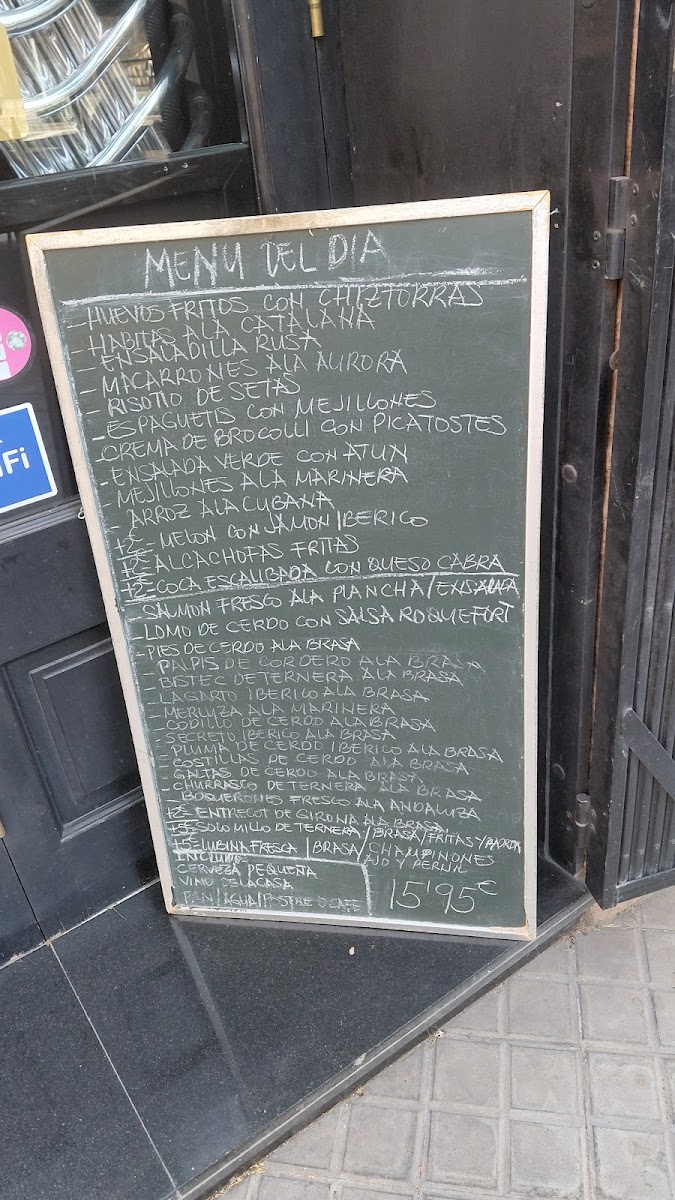 MENU DEL DIA
-HUEVOS FRITOS CON CHIZTORRAS
-HABITAS A LA CATALANA
-ENSALADILLA RUSA
-MACARRONES A LA AURORA
-RISOTTO DE SETAS
-ESPAGUETIS CON MEJILLONES
-CREMA DE BROCOLLI CON PICATOSTES
-ENSALADA VERDE CON ATUN
-MEJILLONES A LA MARINERA
-ARROZ A LA CUBANA
+2€-MELON CON JAMON IBERICO
+2€-ALCACHOFAS FRITAS
+2-COCA ESCALIBADA CON QUESO CABRA
-SALMON FRESCO A LA PLANCHA/ENSALADA
-LOMO DE CERDO CON SALSA ROQUEFORT
-PIES DE CERDO A LA BRASA
-PALPIS DE CORDERO A LA BRASA
-BISTEC DE TERNERA A LA BRASA
-LAGARTO IBERICO A LA BRASA
-MERLUZA A LA MARINERA
-CODILLO DE CERDO A LA BRASA
-SECRETO IBERICO A LA BRASA
-PLUMA DE CERDO IBERICO A LA BRASA
-COSTILLAS DE CERDO A LA BRASA
-GALTAS DE CERDO A LA BRASA
-CHURRASCO DE TERNERA A LA BRASA
-BOQUERONES FRESCO A LA ANDALUZA
ENTRECOT DE GIRONA A LA BRASA
SOLOMILLO DE TERNERA/BRASA/FRITAS Y
LUBINA FRESCA/BRASA/CHAMPIÑONES
AJO Y PERNIL
INCLUIDO
CERVEZA PEQUEÑA
VINO DE LA CASA
PAN/AGUA/POSTRE O CAFE
15'95€
Fi